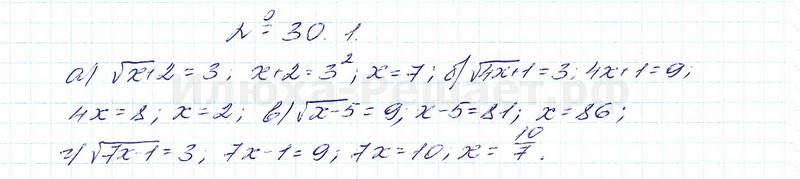 № 30.1.
а) √x+2 = 3; x+2 = 3²; x = 7; б) √4x+1 = 3; 4x+1 = 9;
4x = 8; x = 2; в) √x-5 = 9; x-5 = 81; x = 86;
г) √7x-1 = 3; 7x-1 = 9; 7x = 10; x = 10/7.
Илюха-Решает.рф